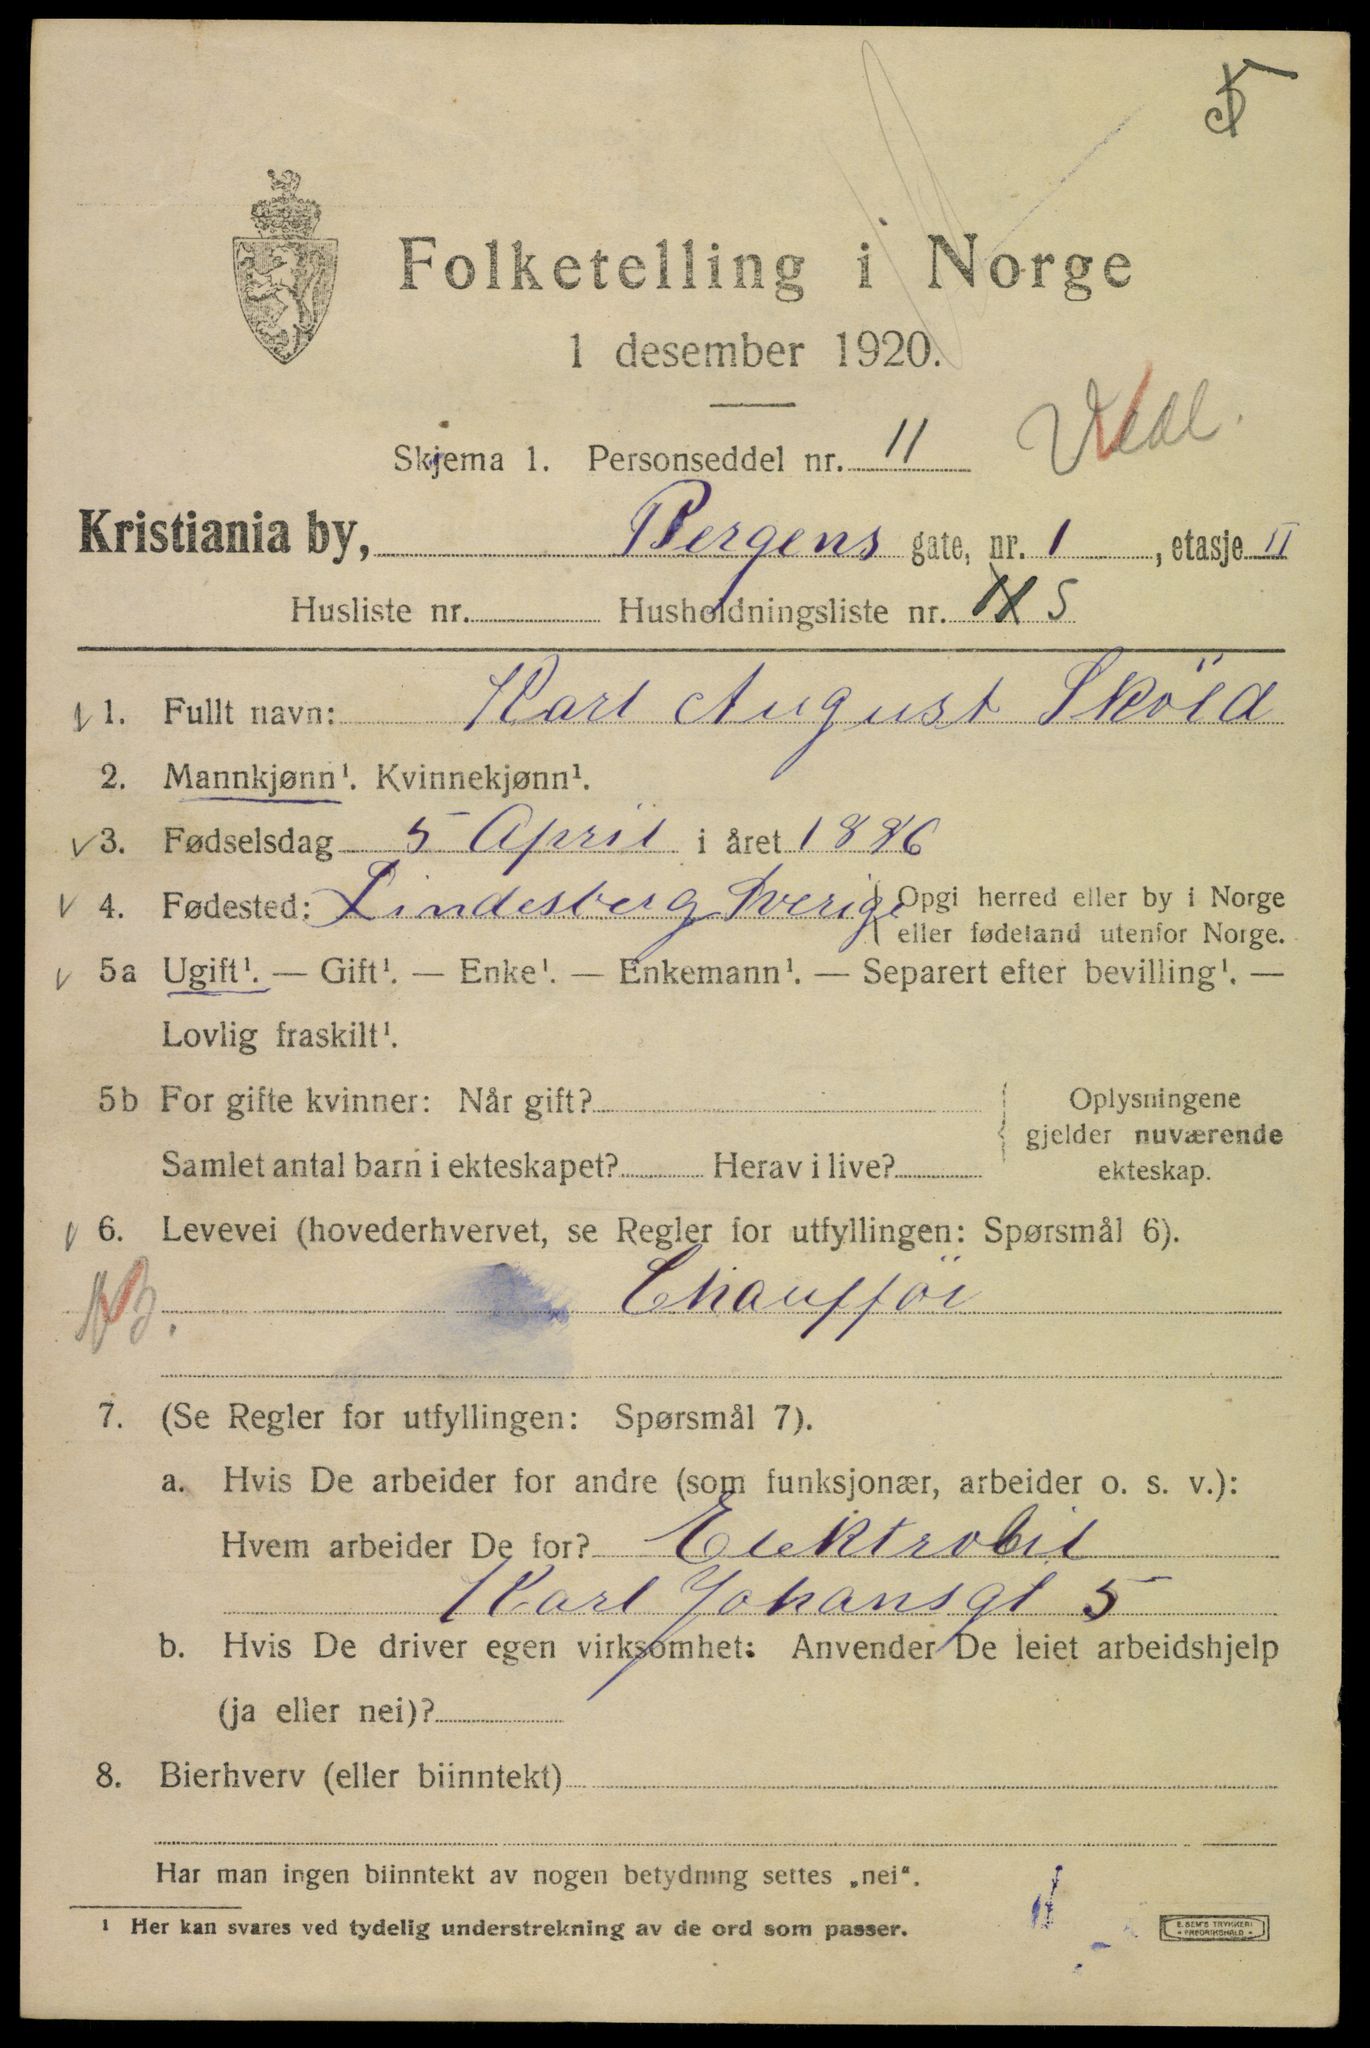 5
Folketelling i Norge
1 desember 1920.
Skjema 1. Personseddel nr. 11
Kristiania by, Bergens gate, nr. 1, etasje II
Husliste nr. Husholdningsliste nr. 5
1. Fullt navn: Karl August Sköld
2. Mannkjønn¹. Kvinnekjønn¹.
3. Fødselsdag 5 April i året 1886
4. Fødested: Lindesberg Sverige Opgi herred eller by i Norge
eller fødeland utenfor Norge.
5a Ugift¹. — Gift¹. — Enke¹. — Enkemann¹. — Separert efter bevilling¹. —
Lovlig fraskilt¹.
5b For gifte kvinner: Når gift?
Samlet antal barn i ekteskapet? Herav i live?
Oplysningene
gjelder nuværende
ekteskap.
6. Levevei (hovederhvervet, se Regler for utfyllingen: Spørsmål 6).
Chaufför
7. (Se Regler for utfyllingen: Spørsmål 7).
a. Hvis De arbeider for andre (som funksjonær, arbeider o. s. v.):
Hvem arbeider De for? Elektrobil
Karl Johansgt 5
b. Hvis De driver egen virksomhet: Anvender De leiet arbeidshjelp
(ja eller nei)?
8. Bierhverv (eller biinntekt)
Har man ingen biinntekt av nogen betydning settes „nei“.
¹ Her kan svares ved tydelig understrekning av de ord som passer.
E. SEM'S TRYKKERI
FREDRIKSHALD